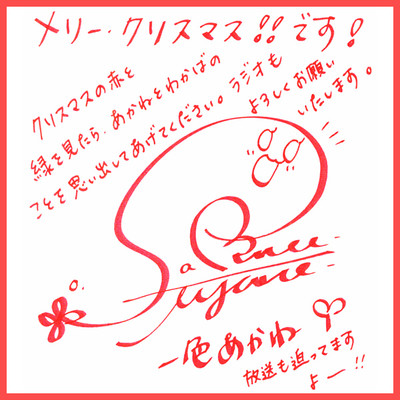 メリー・クリスマス!!です!
クリスマスの赤と
緑を見たら、あかねとわかばの
ことを思い出してあげてください。ラジオも
よろしくお願い
いたします。
一色あかね
放送も迫ってます
よー!!